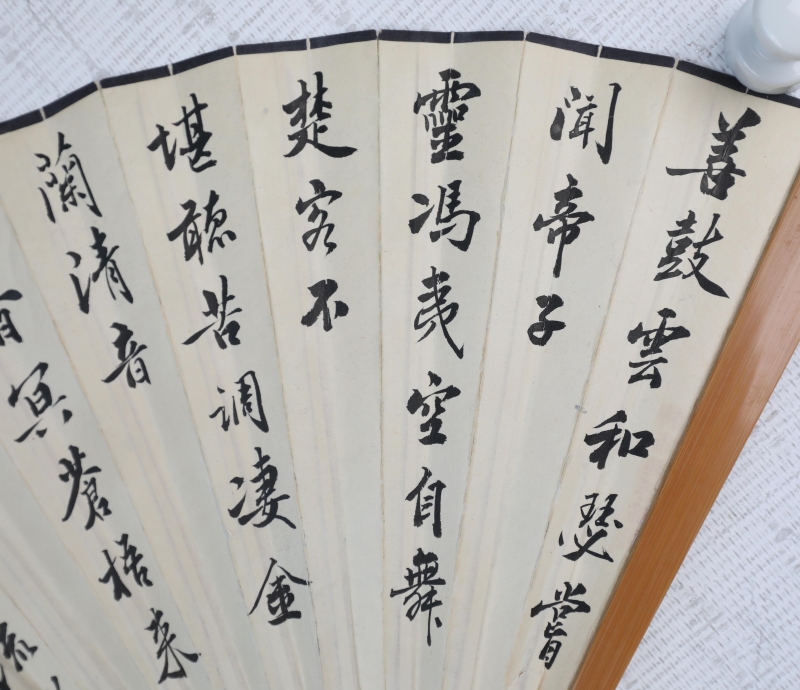 善鼓雲和瑟嘗
聞帝子
靈馮夷空自舞
楚客不
堪聽苦調凄金
蘭清音
冥蒼梧来
流